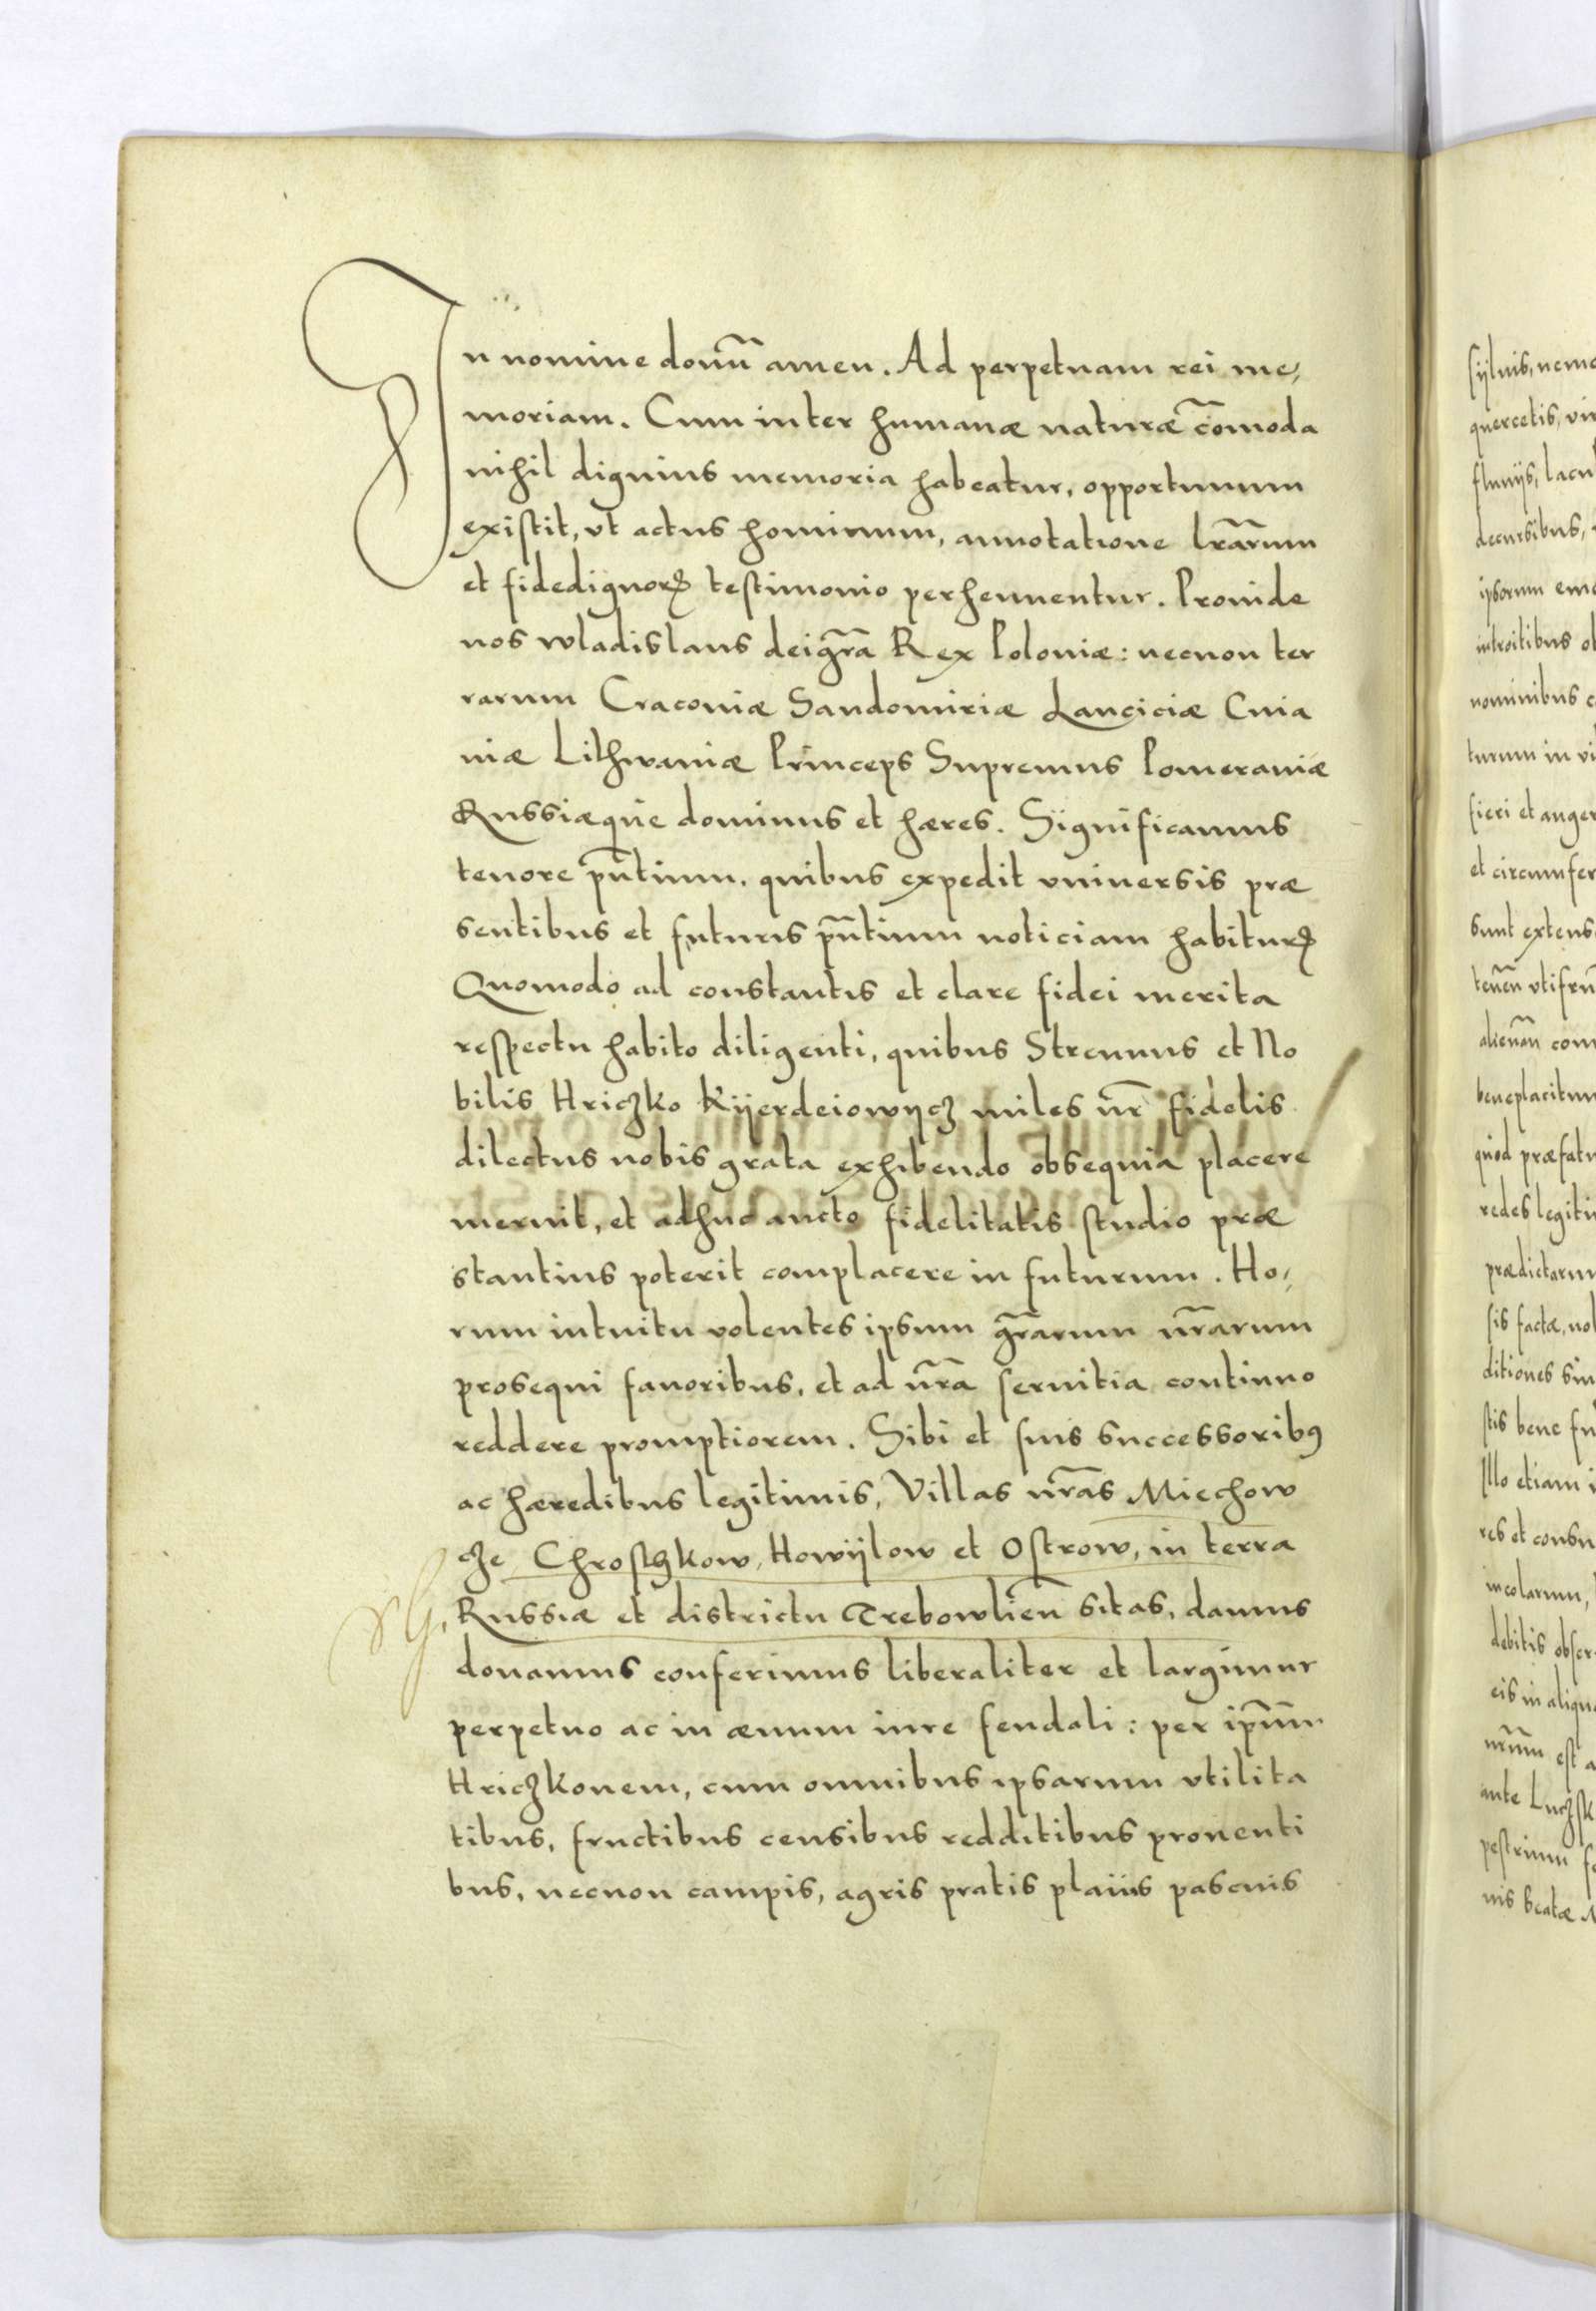 In nomine domī amen. Ad perpetuam rei me,
moriam. Cum inter humanæ naturæ cōmoda
nihil dignius memoria habeatur, opportunum
existit, vt actus hominum, annotatione lr̄arum
et fidedignorꝝ testimonio perhennentur. Prouide
nos wladislaus dei gr̄a Rex Poloniæ: necnon ter
rarum Craconiæ Sandomiriæ Lanciciæ Cuia
uiæ Lithwaniæ Princeps Supremus Pomeraniæ
Russiæque dominus et hæres. Significamus
tenore pn̄tium, quibus expedit vniuersis præ
sentibus et futuris pn̄tium noticiam habiturꝝ
Quomodo ad constantis et clare fidei merita
respectu habito diligenti, quibus Strennus et No
bilis Hriczko Kijerdeiowycz miles nr̄ fidelis
dilectus nobis grata exhibendo obsequia placere
meruit, et adhuc aucto fidelitatis studio præ
stantius poterit complacere in futurum. Ho,
rum intuitu volentes ipsum gr̄arum nr̄arum
prosequi fauoribus, et ad nr̄a seruitia continuo
reddere promptiorem. Sibi et suis successoribꝰ
ac hæredibus legitimis, Villas nr̄as Miechow
cze Chrostkow, Howijlow et Ostrow, in terra
Russiæ et districtu Trebowlien̄ sitas, damus
donamus conferimus liberaliter et largimur
perpetuo ac in æuum iure feudali: per ip̄um
Hriczkonem, cum omnibus ipsarum vtilita
tibus, fructibus censibus redditibus prouenti
bus, necnon campis, agris pratis planis pascuis
sijluis,
quercetis,
fluuijs,
decursibus,
ipsorum
introitibus
nominibus
turum in
fieri et
et
sunt
alienan̄
beneplacitum
quod
redes
sis factæ,
ditiones
stis bene
Illo etiam
res et
incolarum,
debitis
eis in
est
ante
nis beatæ